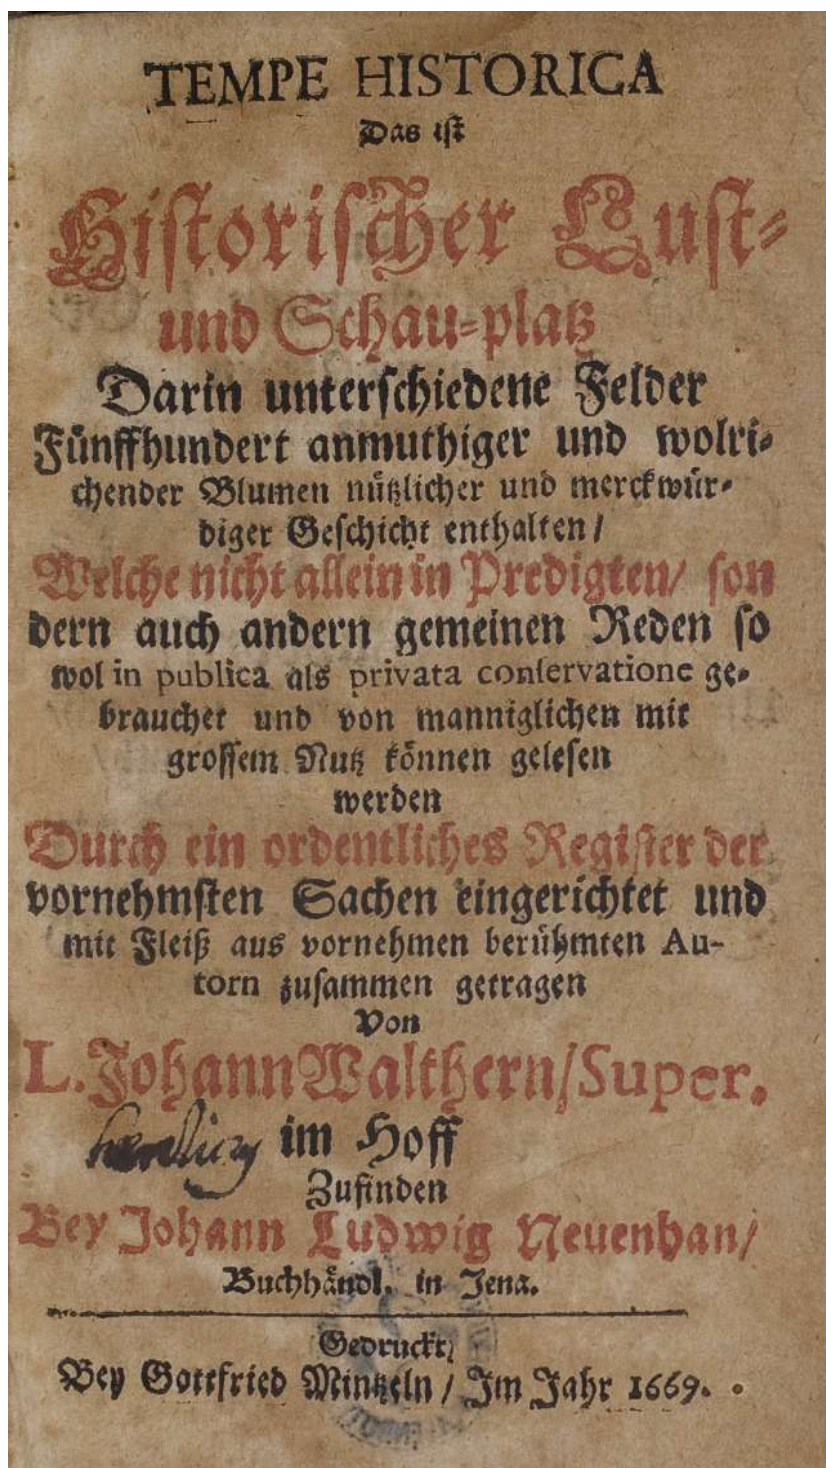 TEMPE HISTORICA
Das ist
Historischer Lust-
und Schau-platz
Darin unterschiedene Felder
Fünffhundert anmuthiger und wolri-
chender Blumen nützlicher und merckwür-
diger Geschicht enthalten /
Welche nicht allein in Predigten / son
dern auch andern gemeinen Reden so
wol in publica als privata conservatione ge-
brauchet und von manniglichen mit
grossem Nutz können gelesen
werden
Durch ein ordentliches Register der
vornehmsten Sachen eingerichtet und
mit Fleiß aus vornehmen berühmten Au-
torn zusammen getragen
Von
L. Johann Walthern / Super.
im Hoff
Zufinden
Bey Johann Ludwig Neuenhan /
Buchhändl. in Jena.
Gedruckt,
Bey Gottfried Mintzeln / Im Jahr 1669.